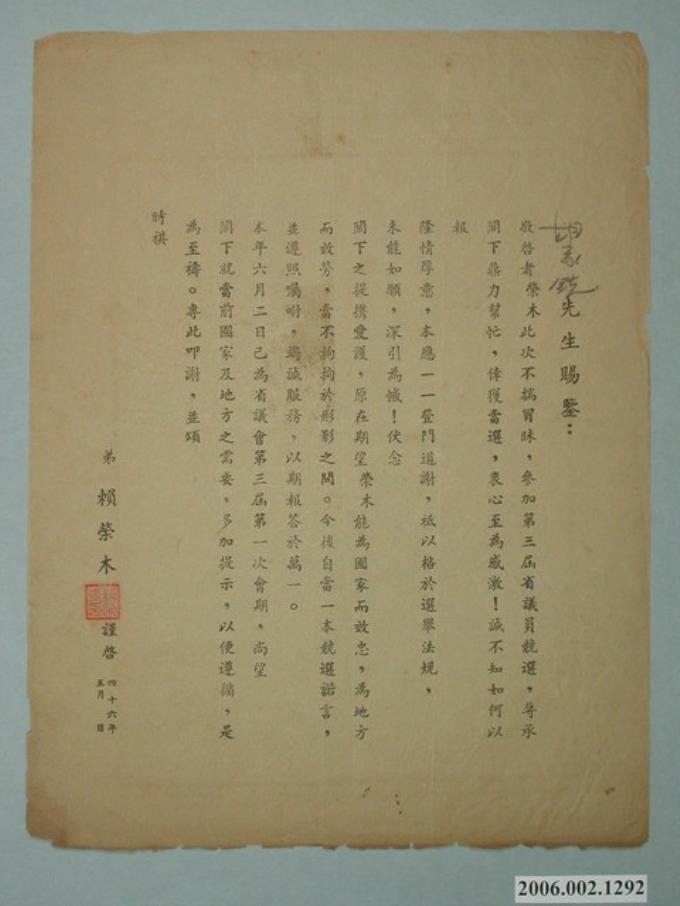 胡 先生賜鑒：
敬啓者榮木此次不揣冒昧，參加第三屆省議員競選，辱承
閣下鼎力幫忙，倖獲當選，衷心至為感激！誠不知如何以
報
隆情厚意，本應一一登門道謝，祗以格於選舉法規，
未能如願，深引為憾！伏念
閣下之提携愛護，原在期望榮木能為國家而效忠，為地方
而效勞，當不拘拘於形影之間。今後自當一本競選諾言，
並遵照囑咐，竭誠服務，以期報答於萬一。
本年六月二日已為省議會第三屆第一次會期，尚望
閣下就當前國家及地方之需要，多加提示，以便遵循，是
為至禱。專此叩謝，並頌
時祺
弟 賴榮木 謹啓 四十六年五月 日
2006.002.1292